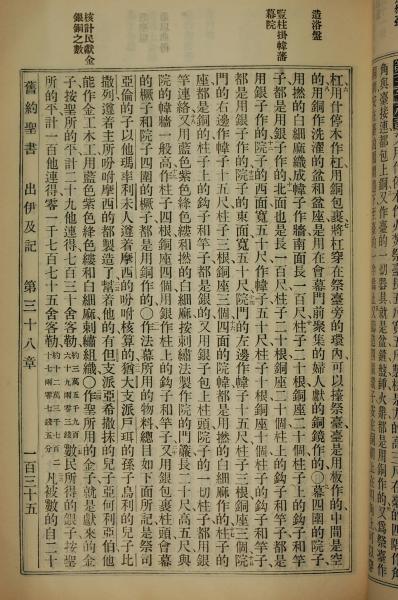 造洛盤
豎柱掛幃藩
幕院
核計民獻金
銀銅之數
角與臺接連都包上銅又作臺的一切器具就是盆鏟盤鍤火鼎都是用銅作的又爲祭臺作
杠用什停木作杠用銅包裹將杠穿在祭臺旁的環內可以擡祭臺祭臺是用板作的中間是空
的用銅作洗濯的盆和盆座是用在會幕門前聚集的婦人獻的銅鏡作的〇幕四圍的院子
用撚的白細麻織成幃子作牆南面長一百尺柱子二十根銅座二十個柱上的鈎子和竿
子都是用銀子作的北面也是長一百尺柱子二十根銅座二十個柱上的鈎子和竿子都是
用銀子作的院子的西面寬五十尺作幃子五十尺柱子十根銅座十個柱子的鈎子和竿子
都是用銀子作的院子的東面寬五十尺院門的左邊作幃子十五尺柱子三根銅座三個院
門的右邊作幃子十五尺柱子三根銅座三個四面的院幃都是用撚的白細麻作的柱子的
座都是銅的柱子上的鈎子和竿子都是銀的又用銀子包上柱頭院子的一切柱子都用銀
竿連絡又用藍色紫色絳色縷和撚的白細麻按刺繡法製作院的門簾長二十尺高五尺與
院的幃牆一般高作柱子四根銅座四個用銀作柱上的鈎子和竿子又用銀包裹柱頭會幕
的橛子和院子四圍的橛子都是用銅作的〇作法幕所用的物料總目如下面所記是祭司
亞倫的子以他瑪率利未人遵着摩西的吩咐核算的猶大支派戶珥的孫子烏利的兒子比
撒列遵着主所吩咐摩西的都製造了幫着他的有但支派亞希撒抹的兒子亞何利亞伯他
能作金工木工用藍色紫色絳色縷和白細麻刺繡組織〇作聖所用的金子就是獻來的金
子按聖所的平計二十九他連得七百三十舍客勒約三萬五千九百六十九兩零三錢數民所得的銀子按聖
所的平計一百他連得零一千七百七十五舍客勒凡被數的自二十
舊約聖書 出伊及記 第三十八章 一百三十五